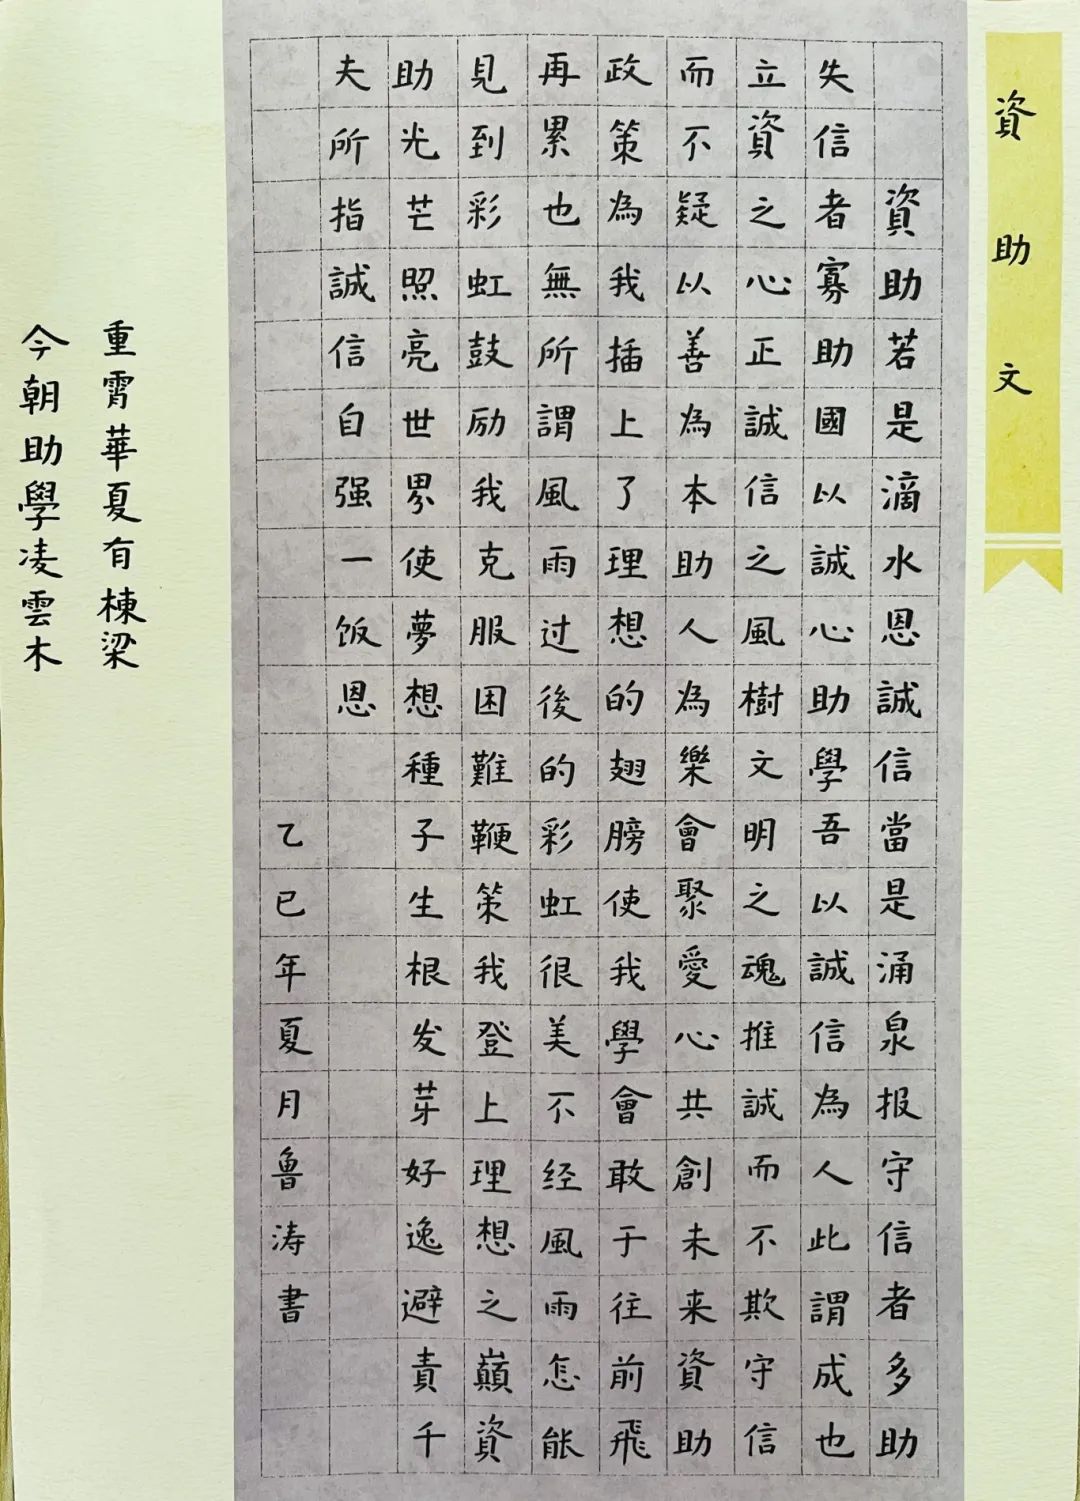 資助文
資助若是滴水恩誠信當是涌泉报守信者多助
失信者寡助國以誠心助學吾以誠信為人此謂成也
立資之心正誠信之風樹文明之魂推誠而不欺守信
而不疑以善為本助人為樂會聚愛心共創未来資助
政策為我插上了理想的翅膀使我學會敢于往前飛
再累也無所謂風雨过後的彩虹很美不经風雨怎能
見到彩虹鼓励我克服困難鞭策我登上理想之巔資
助光芒照亮世界使夢想種子生根发芽好逸避責千
夫所指誠信自强一饭恩
乙巳年夏月鲁涛書
重霄華夏有棟梁
今朝助學凌雲木